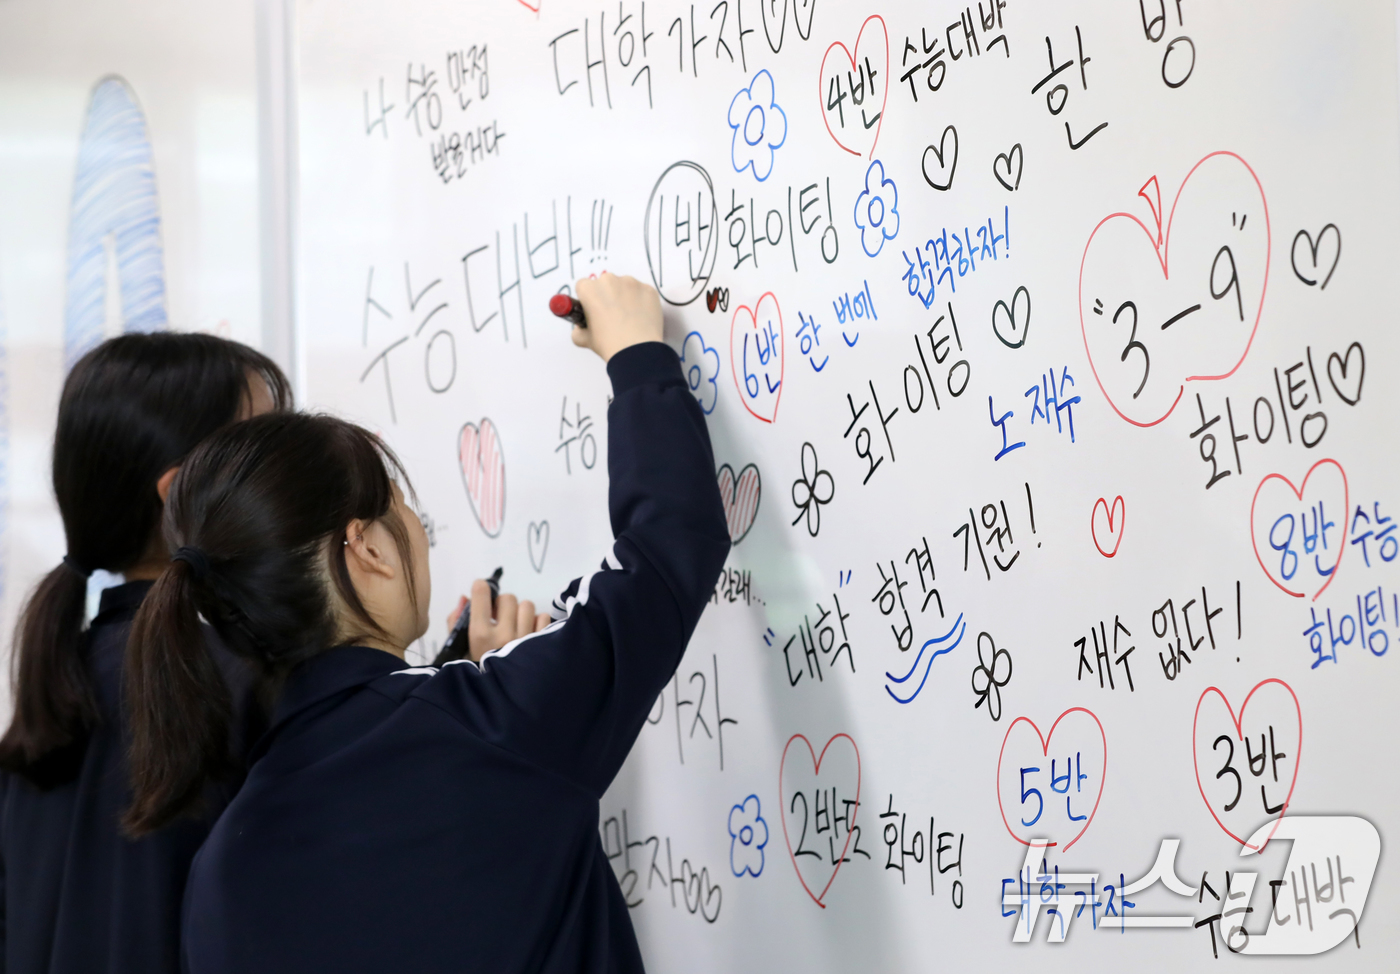 대학가자
나 수능 만점
받을거다
4반
수능대박
한 방
수능대박!!!
1반 화이팅
6반 한 번에 합격하자!
화이팅
노 재수
"3-9"
화이팅
수능
8반 수능
화이팅!
"대학" 합격 기원!
재수 없다!
갈래...
가자
2반도 화이팅
5반
대학가자
3반
수능대박
말자
뉴스1